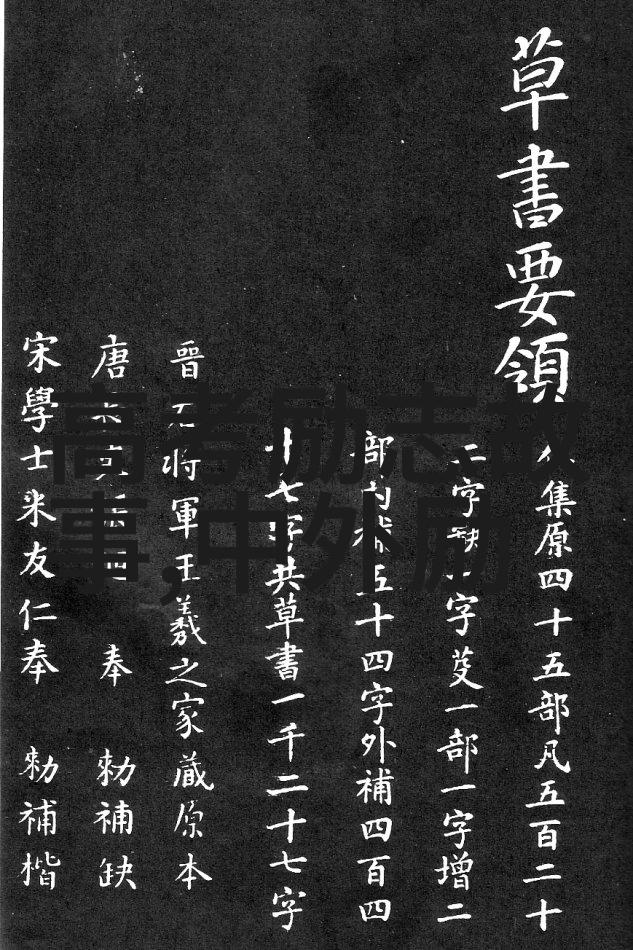 草書要領
集原四十五部凡五百二十
二字缺字芟一部一字增二
部內補五十四字外補四百四
十七字共草書一千二十七字
晉右將軍王羲之家藏原本
唐 奉 勅補缺
宋學士米友仁奉 勅補楷
高考励志故
事,中外励